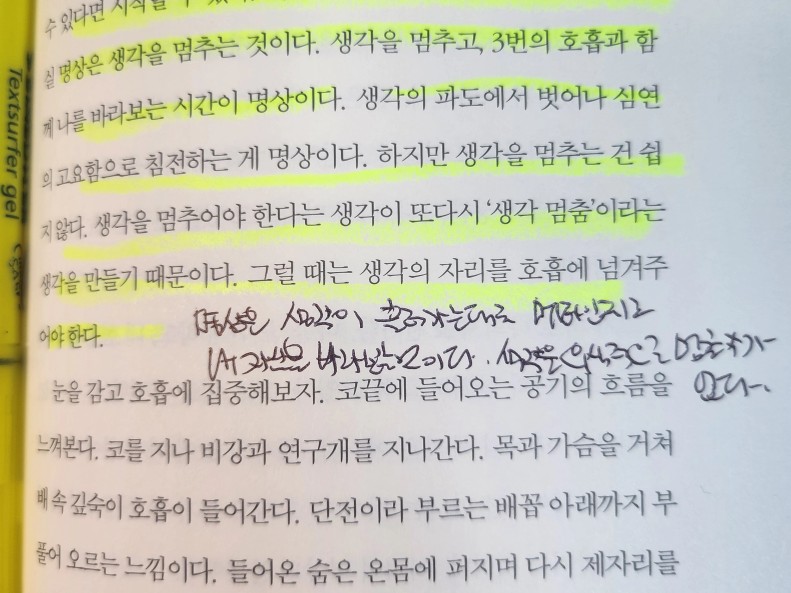 수 있다면 시작할 수 있
실 명상은 생각을 멈추는 것이다. 생각을 멈추고, 3번의 호흡과 함
께 나를 바라보는 시간이 명상이다. 생각의 파도에서 벗어나 심연
의 고요함으로 침전하는 게 명상이다. 하지만 생각을 멈추는 건 쉽
지 않다. 생각을 멈추어야 한다는 생각이 또다시 ‘생각 멈춤’이라는
생각을 만들기 때문이다. 그럴 때는 생각의 자리를 호흡에 넘겨주
어야 한다.
명상은 생각이 흘러가는대로 메타인지로
나 자신을 바라보는 것이다. 생각은 의식적으로 멈출 수가
없다.
눈을 감고 호흡에 집중해보자. 코끝에 들어오는 공기의 흐름을
느껴본다. 코를 지나 비강과 연구개를 지나간다. 목과 가슴을 거쳐
배 속 깊숙이 호흡이 들어간다. 단전이라 부르는 배꼽 아래까지 부
풀어 오르는 느낌이다. 들어온 숨은 온몸에 퍼지며 다시 제자리를
Textsurfer gel